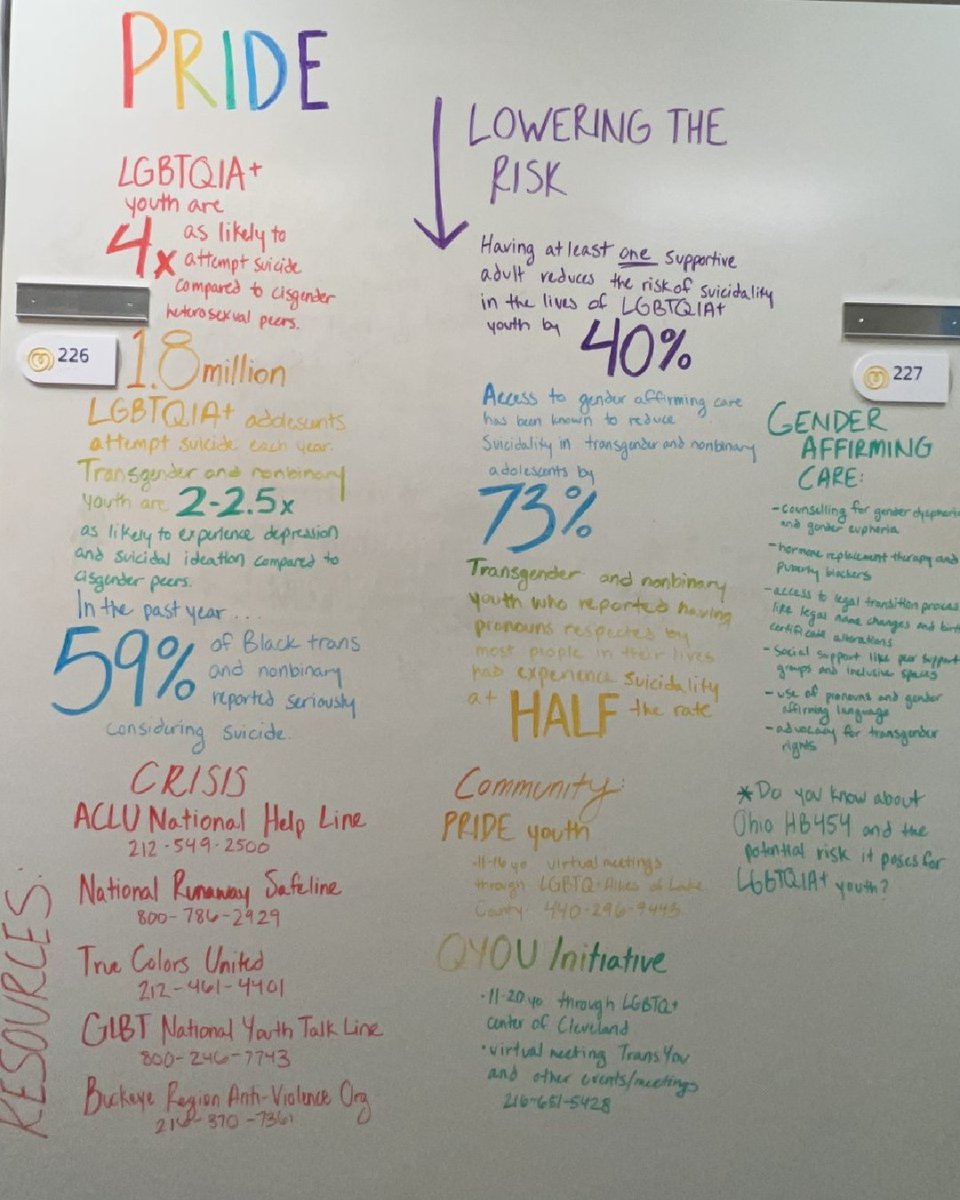 PRIDE
LGBTQIA+
youth are
4x as likely to
attempt suicide
compared to cisgender
heterosexual peers.
226
1.8 million
LGBTQIA+ adolescents
attempt suicide each year.
Transgender and nonbinary
youth are 2-2.5x
as likely to experience depression
and suicidal ideation compared to
cisgender peers.
In the past year...
59% of Black trans
and nonbinary
reported seriously
considering suicide.
LOWERING THE
RISK
Having at least one supportive
adult reduces the risk of suicidality
in the lives of LGBTQIA+
youth by 40%
Access to gender affirming care
has been known to reduce
suicidality in transgender and nonbinary
adolescents by
73%
Transgender and nonbinary
youth who reported having
pronouns respected by
most people in their lives
had experience suicidality
at HALF the rate
227
GENDER
AFFIRMING
CARE:
-counselling for gender dysphoria
and gender euphoria
-hormone replacement therapy and
puberty blockers
-access to legal transition process
like legal name changes and birth
certificate alterations
-social support like peer support
groups and inclusive spaces
-use of pronouns and gender
affirming language
-advocacy for transgender
rights
*Do you know about
Ohio HB454 and the
potential risk it poses for
LGBTQIA+ youth?
RESOURCES:
CRISIS
ACLU National Help Line
212-549-2500
National Runaway Safeline
800-786-2929
True Colors United
212-461-4401
GLBT National Youth Talk Line
800-246-7743
Buckeye Region Anti-Violence Org
Community:
PRIDE youth
-11-16 yo virtual meetings
through LGBTQ Allies of Lake
County 440-296-9443
QYOU Initiative
·11-20 yo through LGBTQ+
center of Cleveland
·virtual meeting TransYou
and other events/meetings
216-651-5428